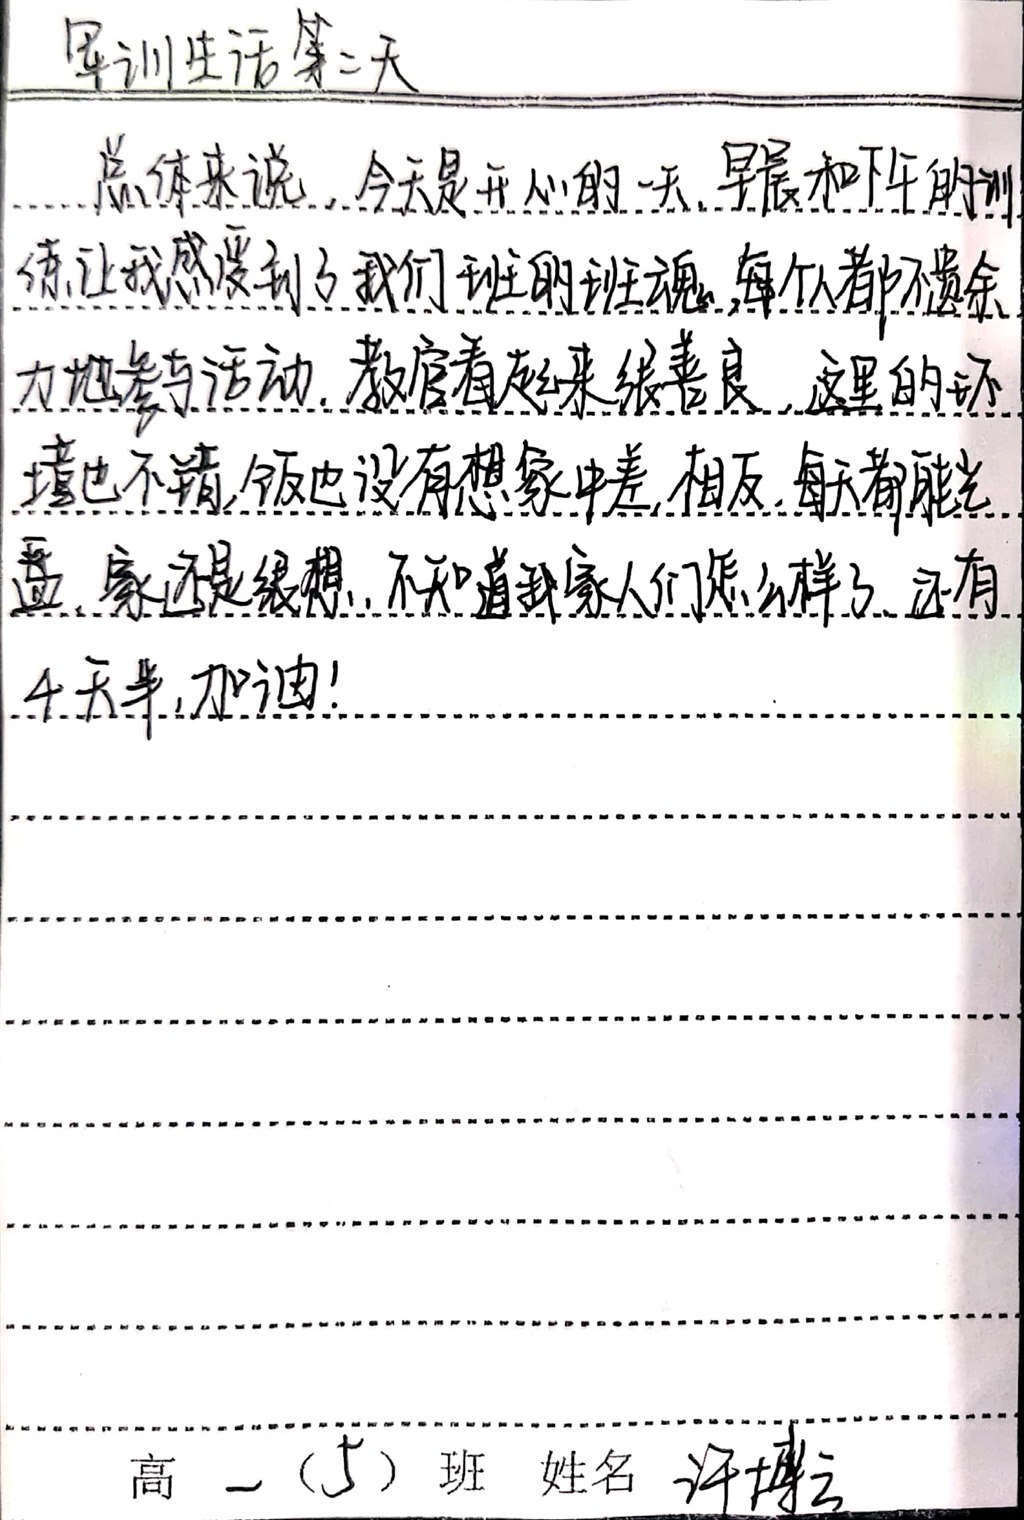 军训生活第二天
总体来说，今天是开心的一天，早晨和下午的训
练让我感受到了我们班的班魂，每个人都不遗余
力地参与活动，教官看起来很善良，这里的环
境也不错，饭也没有想象中差，相反，每天都能光
盘，家还是很想，不知道我家人们怎么样了，还有
4天半，加油！
高一（5）班 姓名 许博云